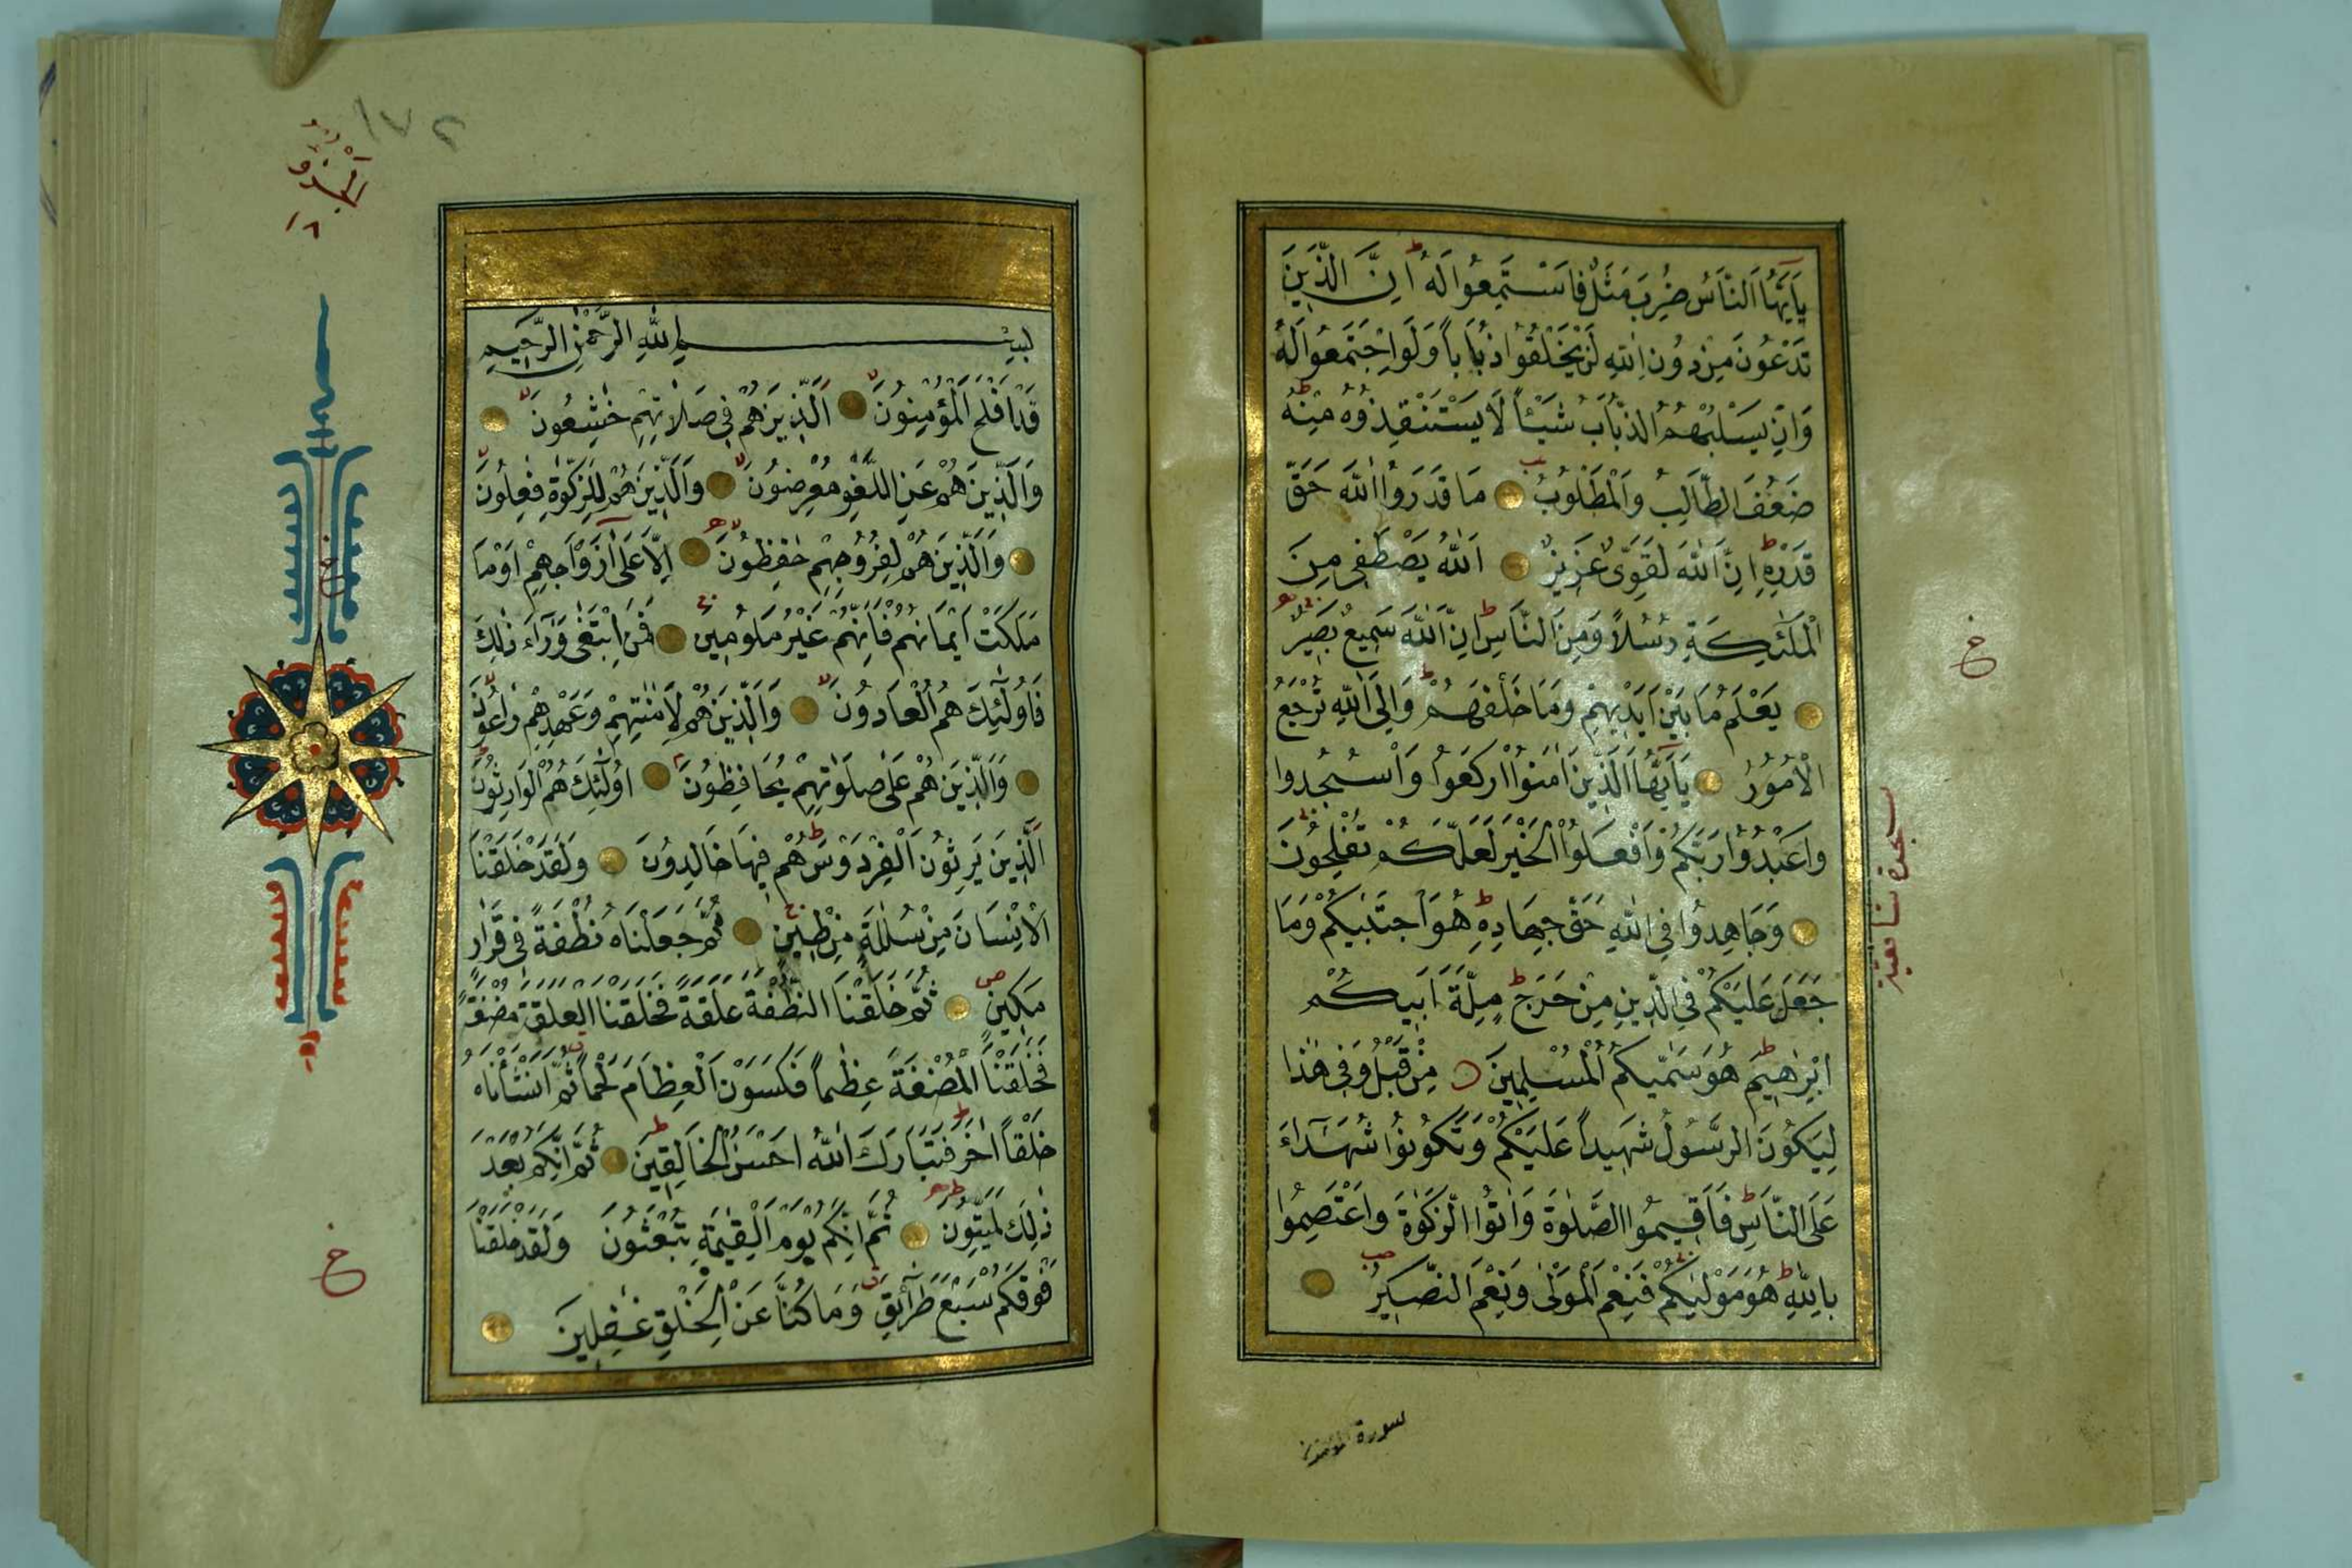 يَاۤاَيُّهَا النَّاسُ ضُرِبَ مَثَلٌ فَاسْتَمِعُوا لَهُ ط اِنَّ الَّذِينَ
تَدْعُونَ مِنْ دُونِ اللّٰهِ لَنْ يَخْلُقُوا ذُبَاباً وَلَوِ اجْتَمَعُوا لَهُ
وَاِنْ يَسْلُبْهُمُ الذُّبَابُ شَيْـًٔا لَا يَسْتَنْقِذُوهُ مِنْهُ ط
ضَعُفَ الطَّالِبُ وَالْمَطْلُوبُ مَا قَدَرُوا اللّٰهَ حَقَّ
قَدْرِهِ ط اِنَّ اللّٰهَ لَقَوِيٌّ عَزِيزٌ اَللّٰهُ يَصْطَفِى مِنَ
الْمَلٰۤئِكَةِ رُسُلاً وَمِنَ النَّاسِ ط اِنَّ اللّٰهَ سَمِيعٌ بَصِيرٌ
يَعْلَمُ مَا بَيْنَ اَيْدِيهِمْ وَمَا خَلْفَهُمْ ط وَاِلَى اللّٰهِ تُرْجَعُ
الْاُمُورُ يَاۤاَيُّهَا الَّذِينَ اٰمَنُوا ارْكَعُوا وَاسْجُدُوا
وَاعْبُدُوا رَبَّكُمْ وَافْعَلُوا الْخَيْرَ لَعَلَّكُمْ تُفْلِحُونَ
وَجَاهِدُوا فِي اللّٰهِ حَقَّ جِهَادِهِ ط هُوَ اجْتَبٰيكُمْ وَمَا
جَعَلَ عَلَيْكُمْ فِي الدِّينِ مِنْ حَرَجٍ ط مِلَّةَ اَبِيكُمْ
اِبْرٰهِيمَ ط هُوَ سَمّٰيكُمُ الْمُسْلِمِينَ مِنْ قَبْلُ وَفِى هٰذَا
لِيَكُونَ الرَّسُولُ شَهِيداً عَلَيْكُمْ وَتَكُونُوا شُهَدَاۤءَ
عَلَى النَّاسِ ط فَاَقِيمُوا الصَّلٰوةَ وَاٰتُوا الزَّكٰوةَ وَاعْتَصِمُوا
بِاللّٰهِ ط هُوَ مَوْلٰيكُمْ فَنِعْمَ الْمَوْلٰى وَنِعْمَ النَّصِيرُ
ع
سجدة شافعية
سورة المؤمنون
الجزو
١٨
١٧٢
بِسْمِ اللّٰهِ الرَّحْمٰنِ الرَّحِيمِ
قَدْ اَفْلَحَ الْمُؤْمِنُونَ لا اَلَّذِينَ هُمْ فِى صَلَاتِهِمْ خٰشِعُونَ لا
وَالَّذِينَ هُمْ عَنِ اللَّغْوِ مُعْرِضُونَ لا وَالَّذِينَ هُمْ لِلزَّكٰوةِ فٰعِلُونَ لا
وَالَّذِينَ هُمْ لِفُرُوجِهِمْ حٰفِظُونَ لا اِلَّا عَلٰٓى اَزْوَاجِهِمْ اَوْ مَا
مَلَكَتْ اَيْمَانُهُمْ فَاِنَّهُمْ غَيْرُ مَلُومِينَ فَمَنِ ابْتَغٰى وَرَاۤءَ ذٰلِكَ
فَاُولٰۤئِكَ هُمُ الْعَادُونَ لا وَالَّذِينَ هُمْ لِاَمٰنٰتِهِمْ وَعَهْدِهِمْ رٰاعُونَ لا
وَالَّذِينَ هُمْ عَلٰى صَلَوٰتِهِمْ يُحَافِظُونَ اُولٰۤئِكَ هُمُ الْوَارِثُونَ
الَّذِينَ يَرِثُونَ الْفِرْدَوْسَ ط هُمْ فِيهَا خَالِدُونَ وَلَقَدْ خَلَقْنَا
الْاِنْسَانَ مِنْ سُلٰلَةٍ مِنْ طِينٍ ثُمَّ جَعَلْنَاهُ نُطْفَةً فِى قَرَارٍ
مَكِينٍ ص ثُمَّ خَلَقْنَا النُّطْفَةَ عَلَقَةً فَخَلَقْنَا الْعَلَقَةَ مُضْغَةً
فَخَلَقْنَا الْمُضْغَةَ عِظٰماً فَكَسَوْنَ الْعِظَامَ لَحْماً ق ثُمَّ اَنْشَأْنَاهُ
خَلْقاً اٰخَرَ ط فَتَبَارَكَ اللّٰهُ اَحْسَنُ الْخَالِقِينَ ط ثُمَّ اِنَّكُمْ بَعْدَ
ذٰلِكَ لَمَيِّتُونَ ط ثُمَّ اِنَّكُمْ يَوْمَ الْقِيٰمَةِ تُبْعَثُونَ وَلَقَدْ خَلَقْنَا
فَوْقَكُمْ سَبْعَ طَرَاۤئِقَ ق وَمَا كُنَّا عَنِ الْخَلْقِ غٰفِلِينَ
ع